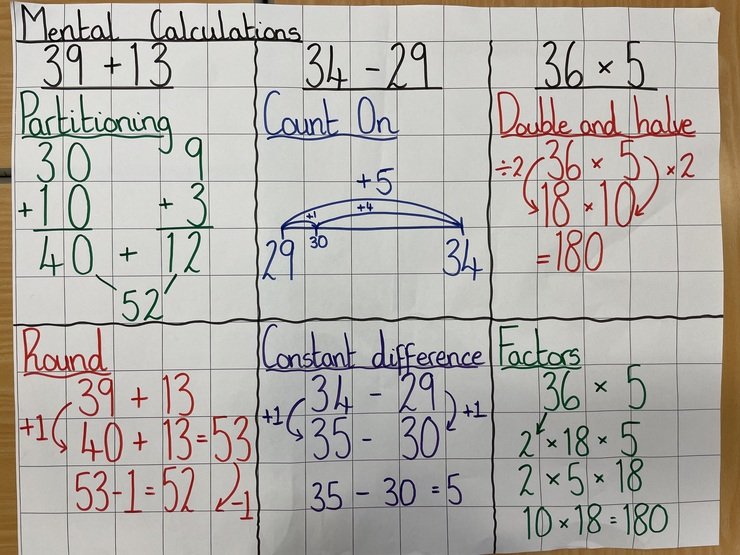 Mental Calculations
39 + 13
34 - 29
36 × 5
Partitioning
30 9
+10 + 3
40 + 12
52
Count On
+5
+1 +4
29 30 34
Double and halve
÷2 36 × 5 ×2
18 × 10
=180
Round
39 + 13
+1 40 + 13 = 53
53-1 = 52 -1
Constant difference
34 - 29
+1 +1
35 - 30
35 - 30 = 5
Factors
36 × 5
2 × 18 × 5
2 × 5 × 18
10 × 18 = 180